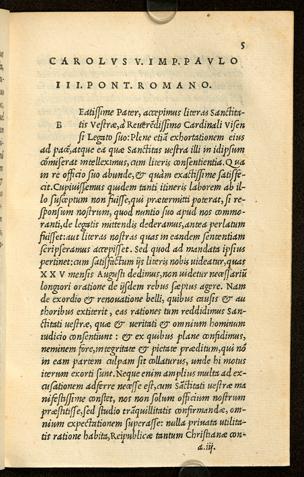 5
CAROLVS V. IMP. PAVLO
III. PONT. ROMANO.
BEatissime Pater, accepimus literas Sanctita-
tis Vestræ, à Reuerēdissimo Cardinali Visen
si Legato suo: Plenæ etiā exhortationem eius
ad pacē, atque ea quæ Sanctitas uestra illi in idipsum
cōmiserat intelleximus, cum literis consentientia. Qua
in re officio suo abunde, & quàm exactissime satisfe-
cit. Cupiuissemus quidem tanti itineris laborem ab il-
lo susceptum non fuisse, qui prætermitti poterat, si re-
sponsum nostrum, quod nuntio suo apud nos commo-
ranti, de legatis mittendis dederamus, antea perlatum
fuisset: aut literas nostras quas in eandem sententiam
scripseramus accepisset. Sed quod ad mandata ipsius
pertinet: cum satisfactum ijs literis nobis uideatur, quas
XXV mensis Augusti dedimus, non uidetur necessariū
longiori oratione de ijsdem rebus sæpius agere. Nam
de exordio & renouatione belli, quibus causis & au
thoribus extiterit, eas rationes tum reddidimus Sanc-
titati uestræ, quæ & ueritati & omnium hominum
iudicio consentiunt: & ex quibus plane confidimus,
neminem fore, integritate & pietate præditum, qui nō
in eam partem culpam sit collaturus, unde hi motus
iterum exorti sunt. Neque enim amplius multa ad ex-
cusationem adferre necesse est, cum Sāctitati uestræ ma
nifestissime constet, nos non solum officium nostrum
præstitisse, sed studio trāquillitatis confirmandæ, om-
nium expectationem superasse: nulla priuata utilita-
tis ratione habita, Reipublicæ tantum Christianæ con-
a.iij.